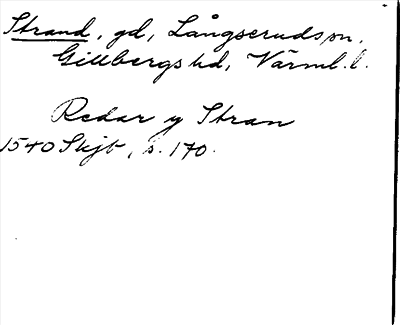 Strand, gd, Långseruds sn,
Gillbergs hd, Värml. l.
Redar y Stran
1540 Skjb, s. 170.